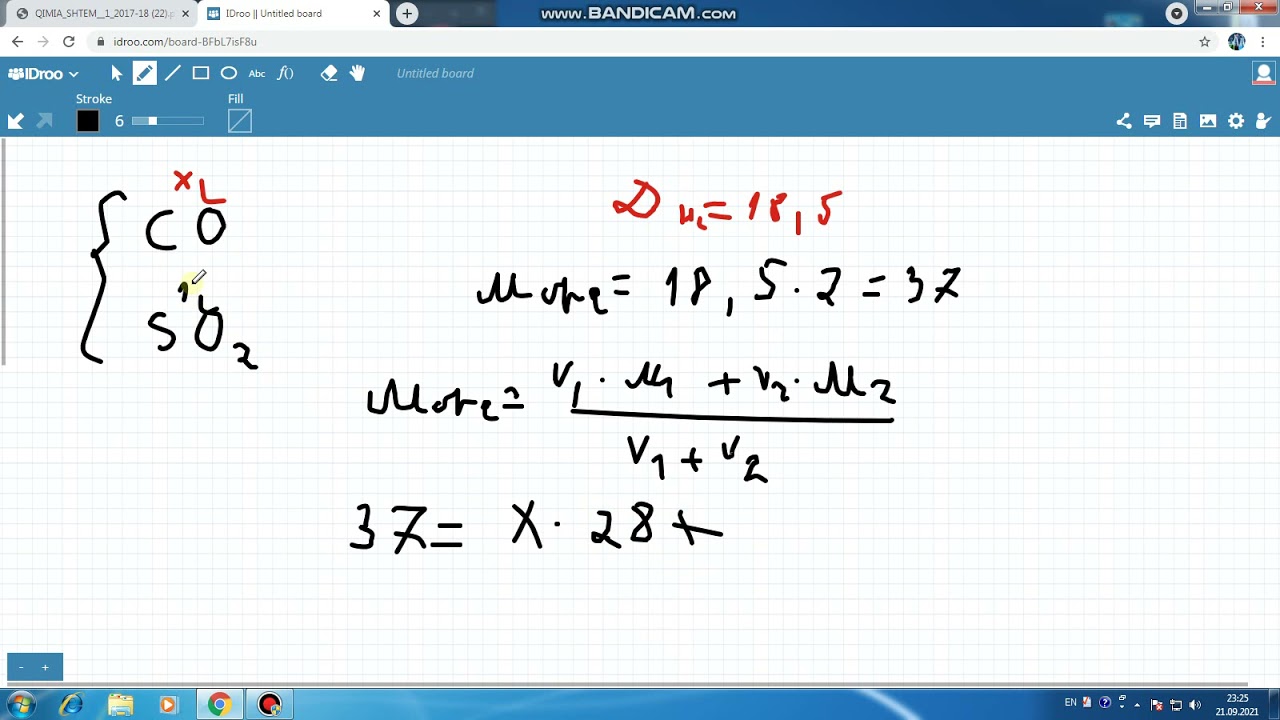 QIMIA_SHTEM__1_2017-18 (22).p
IDroo || Untitled board
www.BANDICAM.com
idroo.com/board-BFbL7isF8u
IDroo
Abc
f()
Untitled board
Stroke
Fill
6
x L
CO
1 L
SO2
D H2 = 18,5
18,5 · 2 = 37
V1 · M1 + V2 · M2
V1 + V2
37 = X · 28 +
- +
EN
23:25
21.09.2021